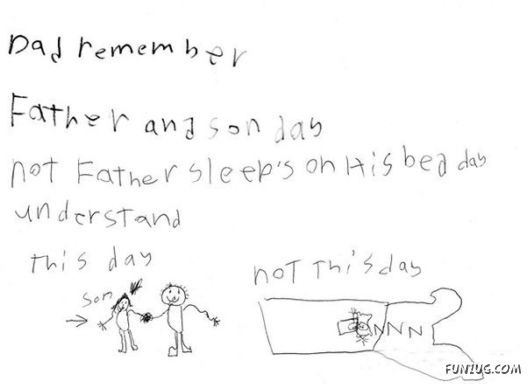 Dad remember
Father and son day
not Father sleep's on His bed day
understand
this day
not this day
son
NNN
FUNIUG.COM